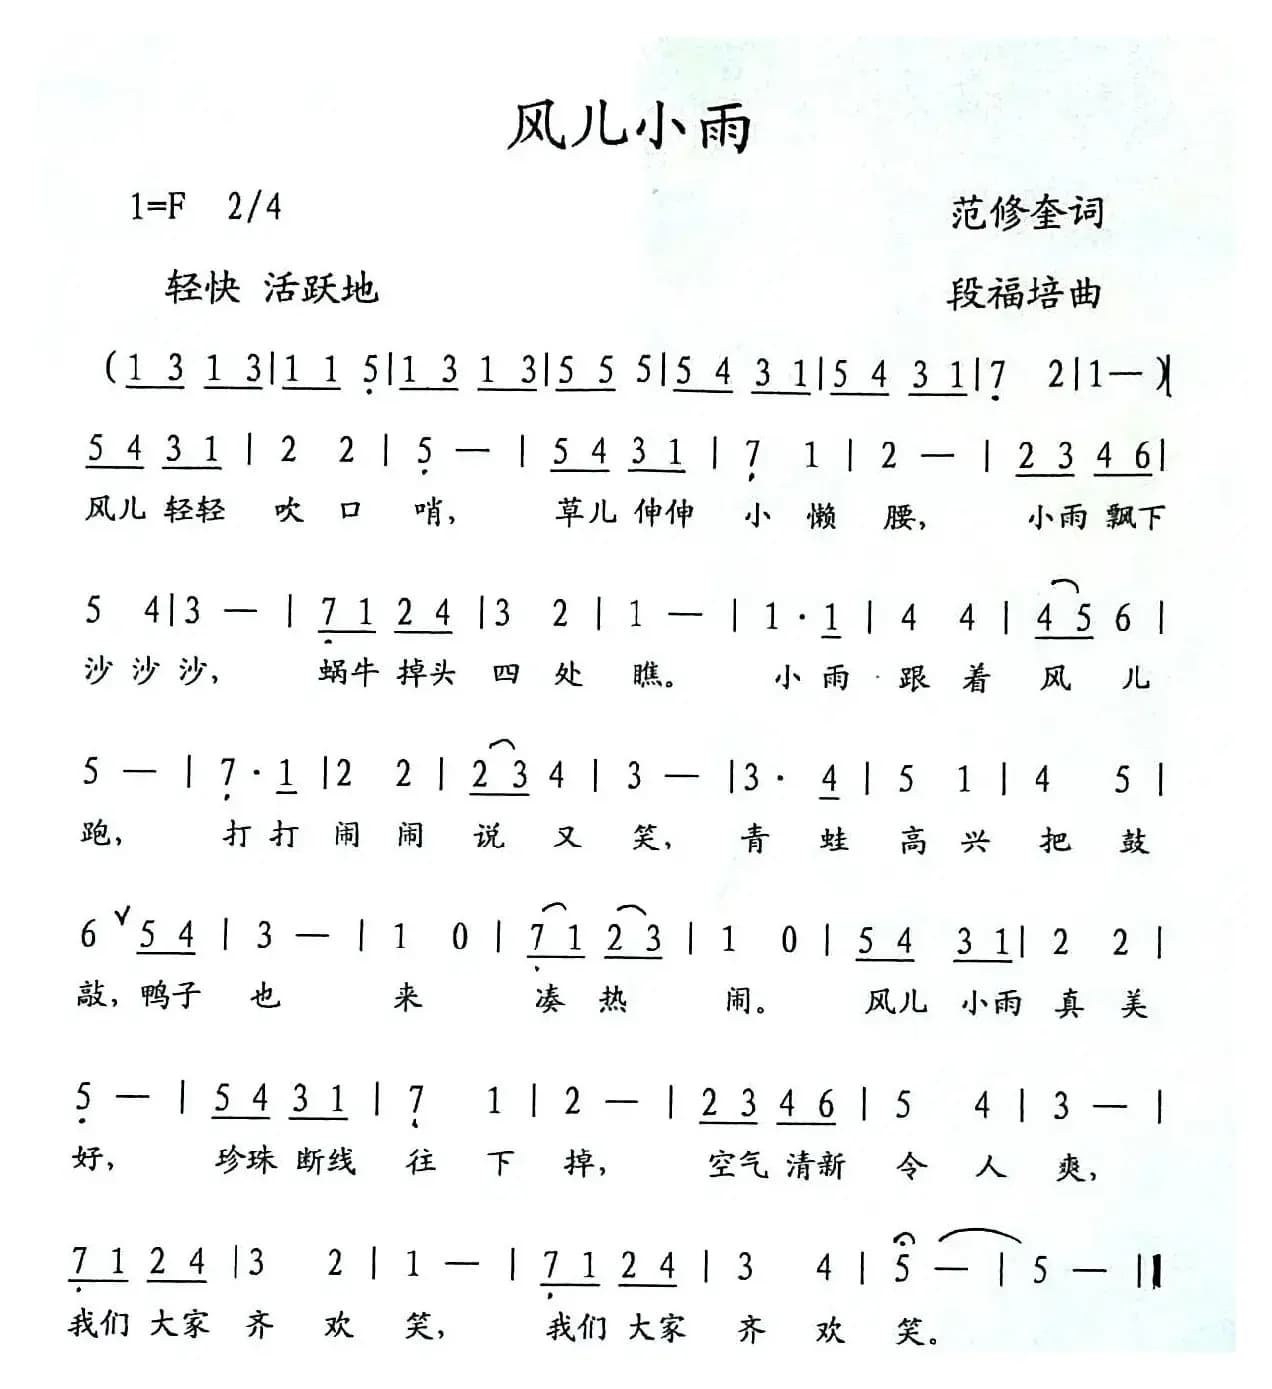 风儿小雨
1=F 2/4 范修奎词
轻快 活跃地 段福培曲
(1 3 1 3|1 1 5|1 3 1 3|5 5 5|5 4 3 1|5 4 3 1|7 2|1—)|
5 4 3 1 | 2 2 | 5 — | 5 4 3 1 | 7 1 | 2 — | 2 3 4 6|
风儿 轻轻 吹 口 哨, 草儿 伸伸 小 懒 腰, 小雨 飘下
5 4|3 — | 7 1 2 4 |3 2 | 1 — | 1 · 1 | 4 4 | 4 5 6 |
沙 沙 沙, 蜗牛 掉头 四 处 瞧。 小 雨 跟 着 风 儿
5 — | 7 · 1 |2 2 | 2 3 4 | 3 — |3 · 4 | 5 1 | 4 5 |
跑, 打 打 闹 闹 说 又 笑, 青 蛙 高 兴 把 鼓
6 ∨ 5 4 | 3 — | 1 0 | 7 1 2 3 | 1 0 | 5 4 3 1| 2 2 |
敲, 鸭子 也 来 凑 热 闹。 风儿 小雨 真 美
5 — | 5 4 3 1 | 7 1 | 2 — | 2 3 4 6 | 5 4 | 3 — |
好, 珍珠 断线 往 下 掉, 空气 清新 令 人 爽,
7 1 2 4 |3 2 | 1 — | 7 1 2 4 | 3 4 | 5 — | 5 — ‖
我们 大家 齐 欢 笑, 我们 大家 齐 欢 笑。